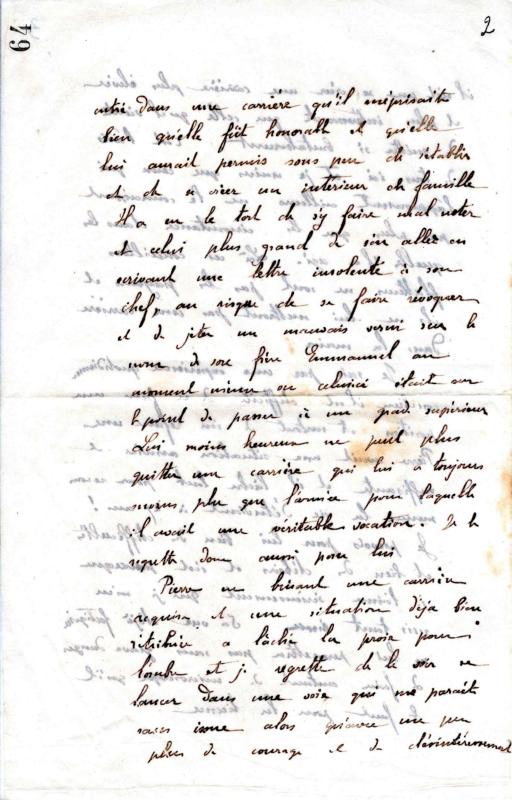 64
2
entré dans une carrière qu'il méprisait
bien qu'elle fût honorable et qu'elle
lui aurait permis sous peu de s'établir
et de se créer un intérieur de famille
Il a eu le tort de s'y faire mal noter
et celui plus grand de s'en aller en
écrivant une lettre insolente à son
chef, au risque de se faire révoquer
et de jeter un mauvais vernis sur le
nom de son frère Emmanuel au
moment même où celui-ci était sur
le point de passer à un grade supérieur
Lui moins heureux ne peut plus
quitter une carrière qui lui a toujours
moins plu que l'armée pour laquelle
il avait une véritable vocation. Je le
regrette donc aussi pour lui
Pierre en brisant une carrière
requise et une situation déjà bien
rétribuée a lâché la proie pour
l'ombre et je regrette de le voir se
lancer dans une voie qui me paraît
sans issue alors qu'avec un peu
plus de courage et de désintéressement